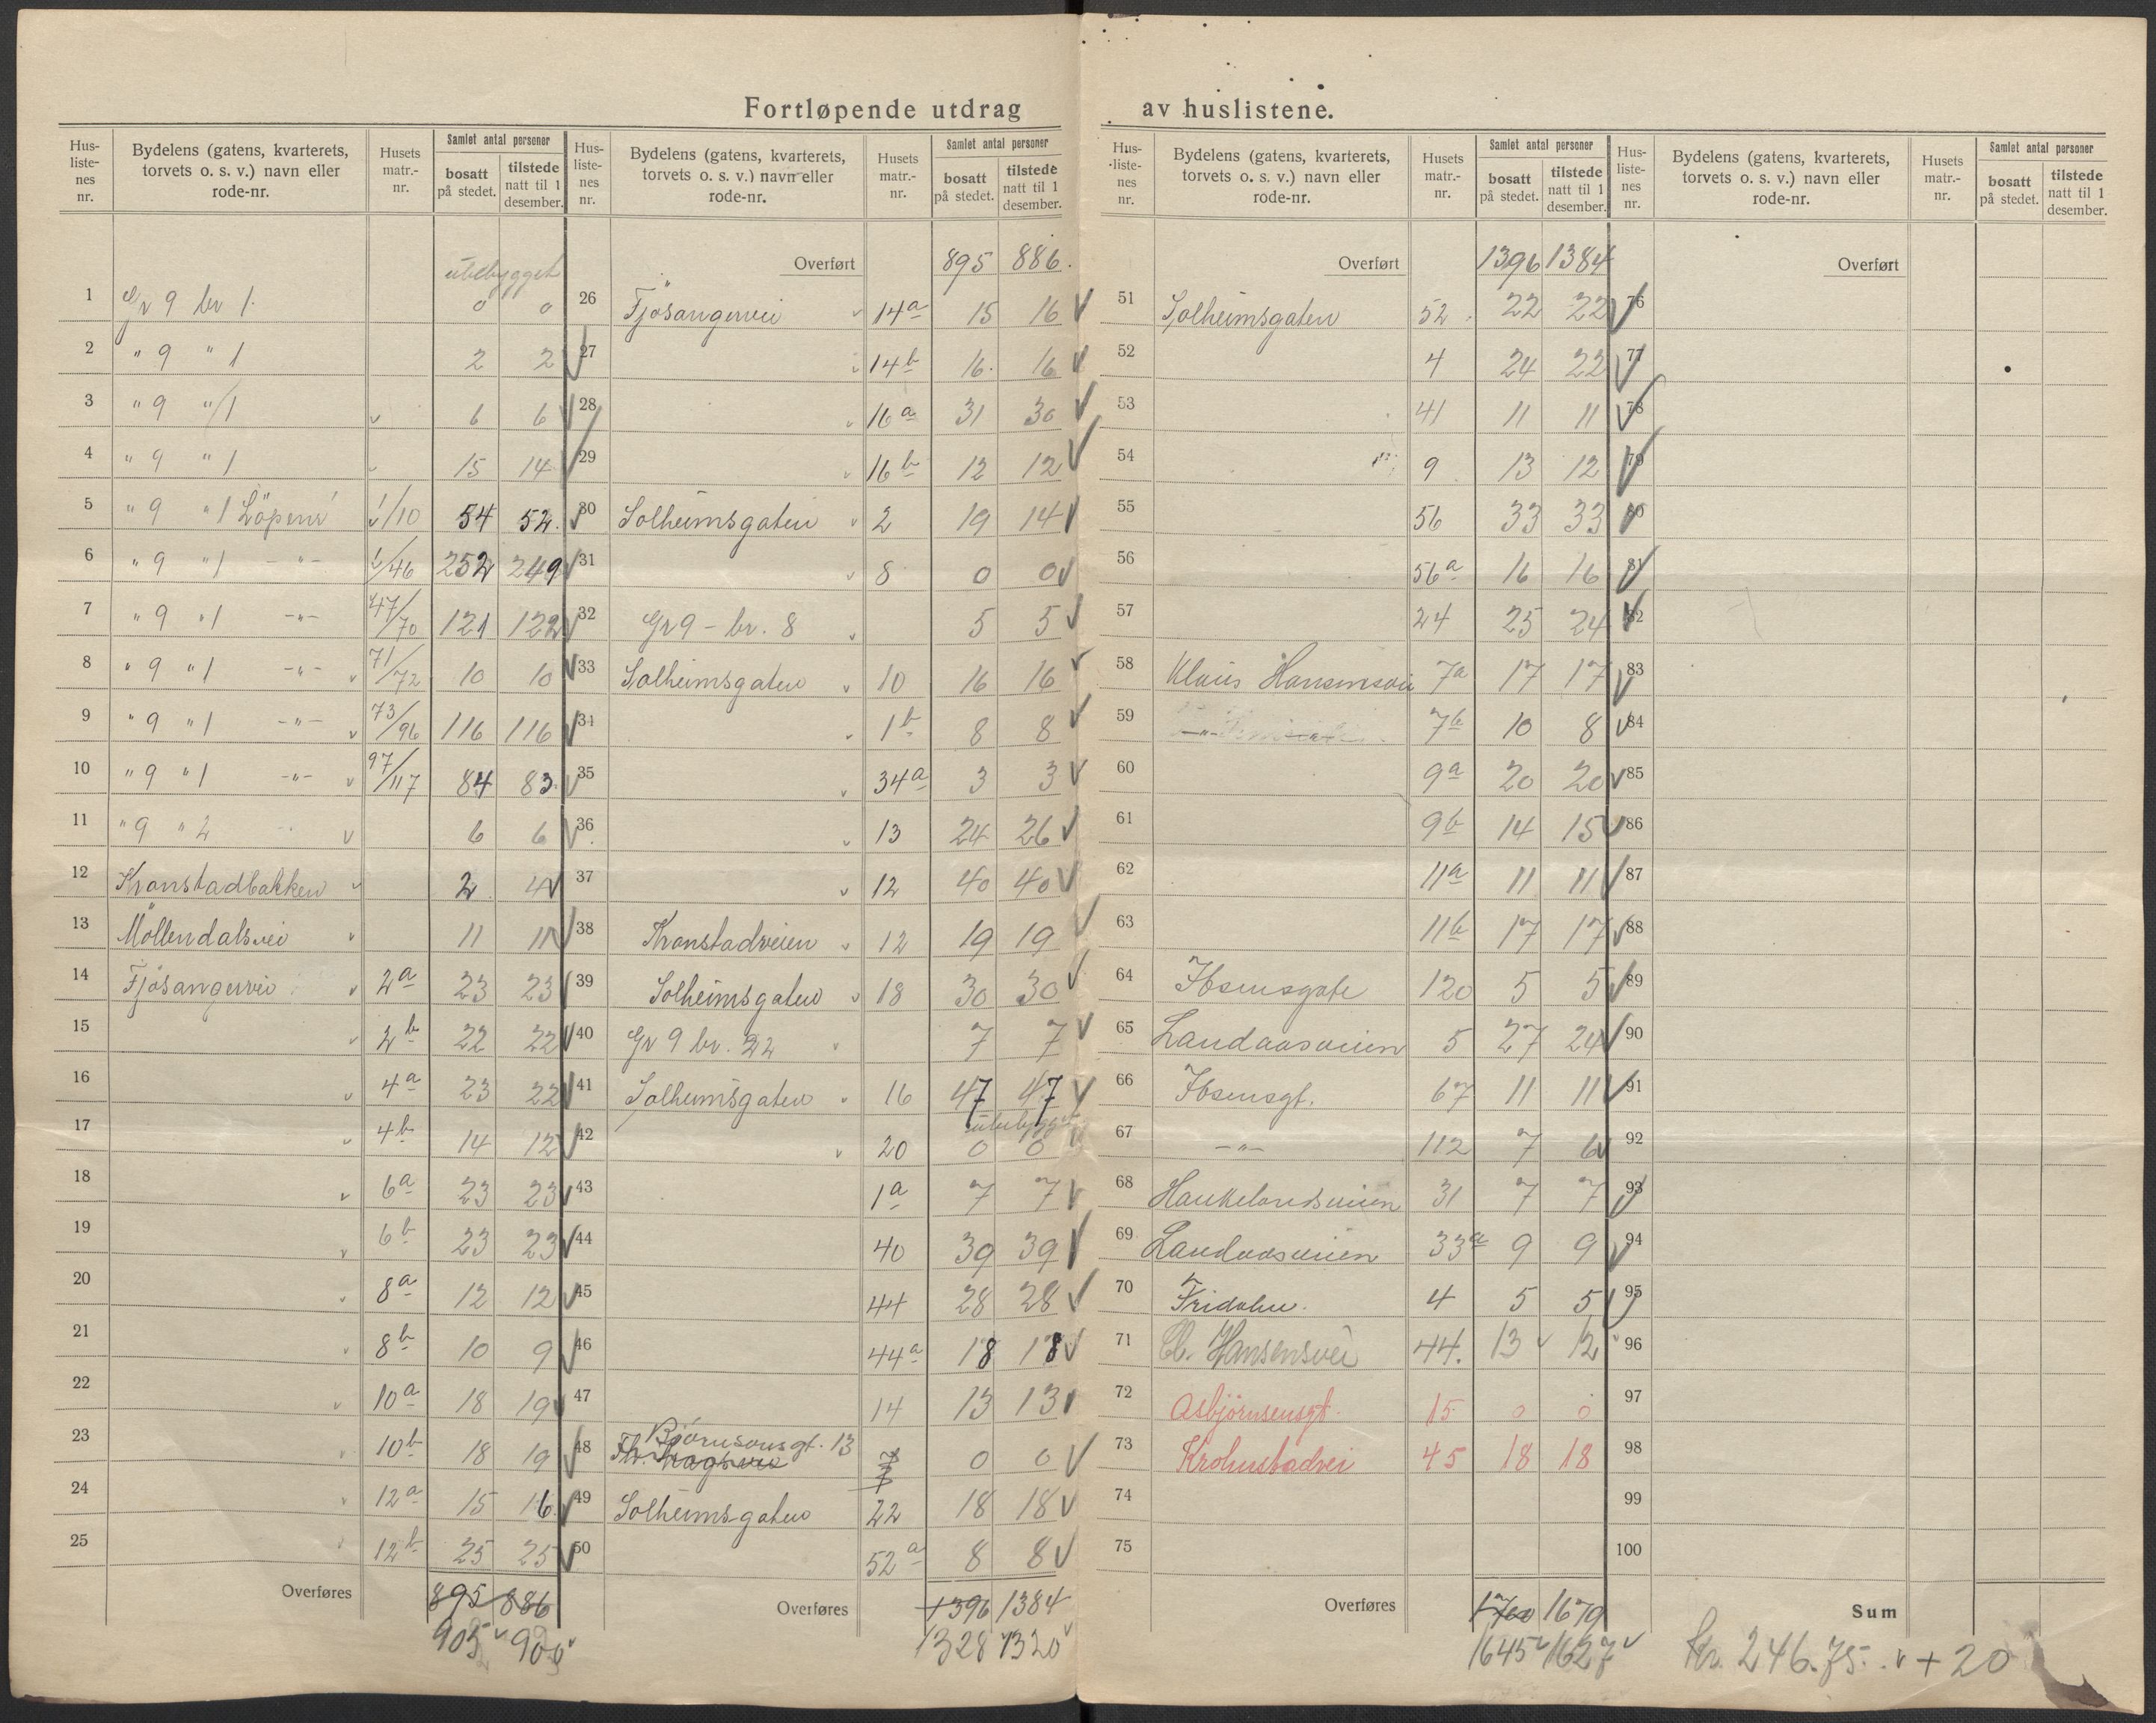 Fortløpende utdrag av huslistene.
Hus-liste-nes nr. Bydelens (gatens, kvarterets, torvets o. s. v.) navn eller rode-nr. Husets matr.-nr. Samlet antal personer bosatt på stedet. tilstede natt til 1 desember.
ubebygget
1 Gr 9 br 1. 0 0
2 " 9 " 1 2 2
3 " 9 " 1 6 6
4 " 9 " 1 15 14
5 " 9 " 1 Löpenr 1/10 54 52.
6 " 9 " 1 -"- /46 252 249
7 " 9 " 1 -"- 47/70 121 122
8 " 9 " 1 -"- 71/72 10 10
9 " 9 " 1 -"- 73/96 116 116
10 " 9 " 1 -"- 97/117 84 83
11 " 9 " 2 6 6
12 Kronstadbakken 2 4
13 Möllendalsvei 11 11
14 Fjösangervei 2a 23 23
15 2b 22 22
16 4a 23 22
17 4b 14 12
18 6a 23 23
19 6b 23 23
20 8a 12 12
21 8b 10 9
22 10a 18 19
23 10b 18 19
24 12a 15 16
25 12b 25 25
Overføres 895 886
905 900
Hus-liste-nes nr. Bydelens (gatens, kvarterets, torvets o. s. v.) navn eller rode-nr. Husets matr.-nr. Samlet antal personer bosatt på stedet. tilstede natt til 1 desember.
Overført 895 886.
26 Fjösangervei 14a 15 16
27 14b 16. 16
28 16a 31 30
29 16b 12 12
30 Solheimsgaten 2 19 14
31 8 0 0
32 Gr 9 - br. 8 5 5
33 Solheimsgaten 10 16 16
34 1b 8 8
35 34a 3 3
36 13 24 26
37 12 40 40
38 Kronstadveien 12 19 19
39 Solheimsgaten 18 30 30
40 Gr 9 br. 22 7 7
41 Solheimsgaten 16 47 47
ubebygget
42 20 0 0
43 1a 7 7
44 40 39 39
45 44 28 28
46 44a 18 18
47 14 13 13
Björnsonsgt. 13
48 7 0 0
49 Solheimsgaten 22 18 18
50 52a 8 8
Overføres 1396 1384
1328 1320
Hus-liste-nes nr. Bydelens (gatens, kvarterets, torvets o. s. v.) navn eller rode-nr. Husets matr.-nr. Samlet antal personer bosatt på stedet. tilstede natt til 1 desember.
Overført 1396 1384
51 Solheimsgaten 52 22 22
52 4 24 22
53 41 11 11
54 9 13 12
55 56 33 33
56 56a 16 16
57 24 25 24
58 Klaus Hansensvei 7a 17 17
59 -"- 7b 10 8
60 9a 20 20
61 9b 14 15
62 11a 11 11
63 11b 17 17
64 Ibsensgate 120 5 5
65 Landaasveien 5 27 24
66 Ibsensgt. 67 11 11
67 -"- 112 7 6
68 Haukelandsveien 31 7 7
69 Landaasveien 33a 9 9
70 Fridalen. 4 5 5
71 Cl. Hansensvei 44. 13 12
72 Asbjörnsensgt. 15 0 0
73 Krohnstadvei 45 18 18
74
75
Overføres 1700 1679
1645 1627
Hus-liste-nes nr. Bydelens (gatens, kvarterets, torvets o. s. v.) navn eller rode-nr. Husets matr.-nr. Samlet antal personer bosatt på stedet. tilstede natt til 1 desember.
Overført
76
77
78
79
80
81
82
83
84
85
86
87
88
89
90
91
92
93
94
95
96
97
98
99
100
Sum
Kr. 246.75. + 20